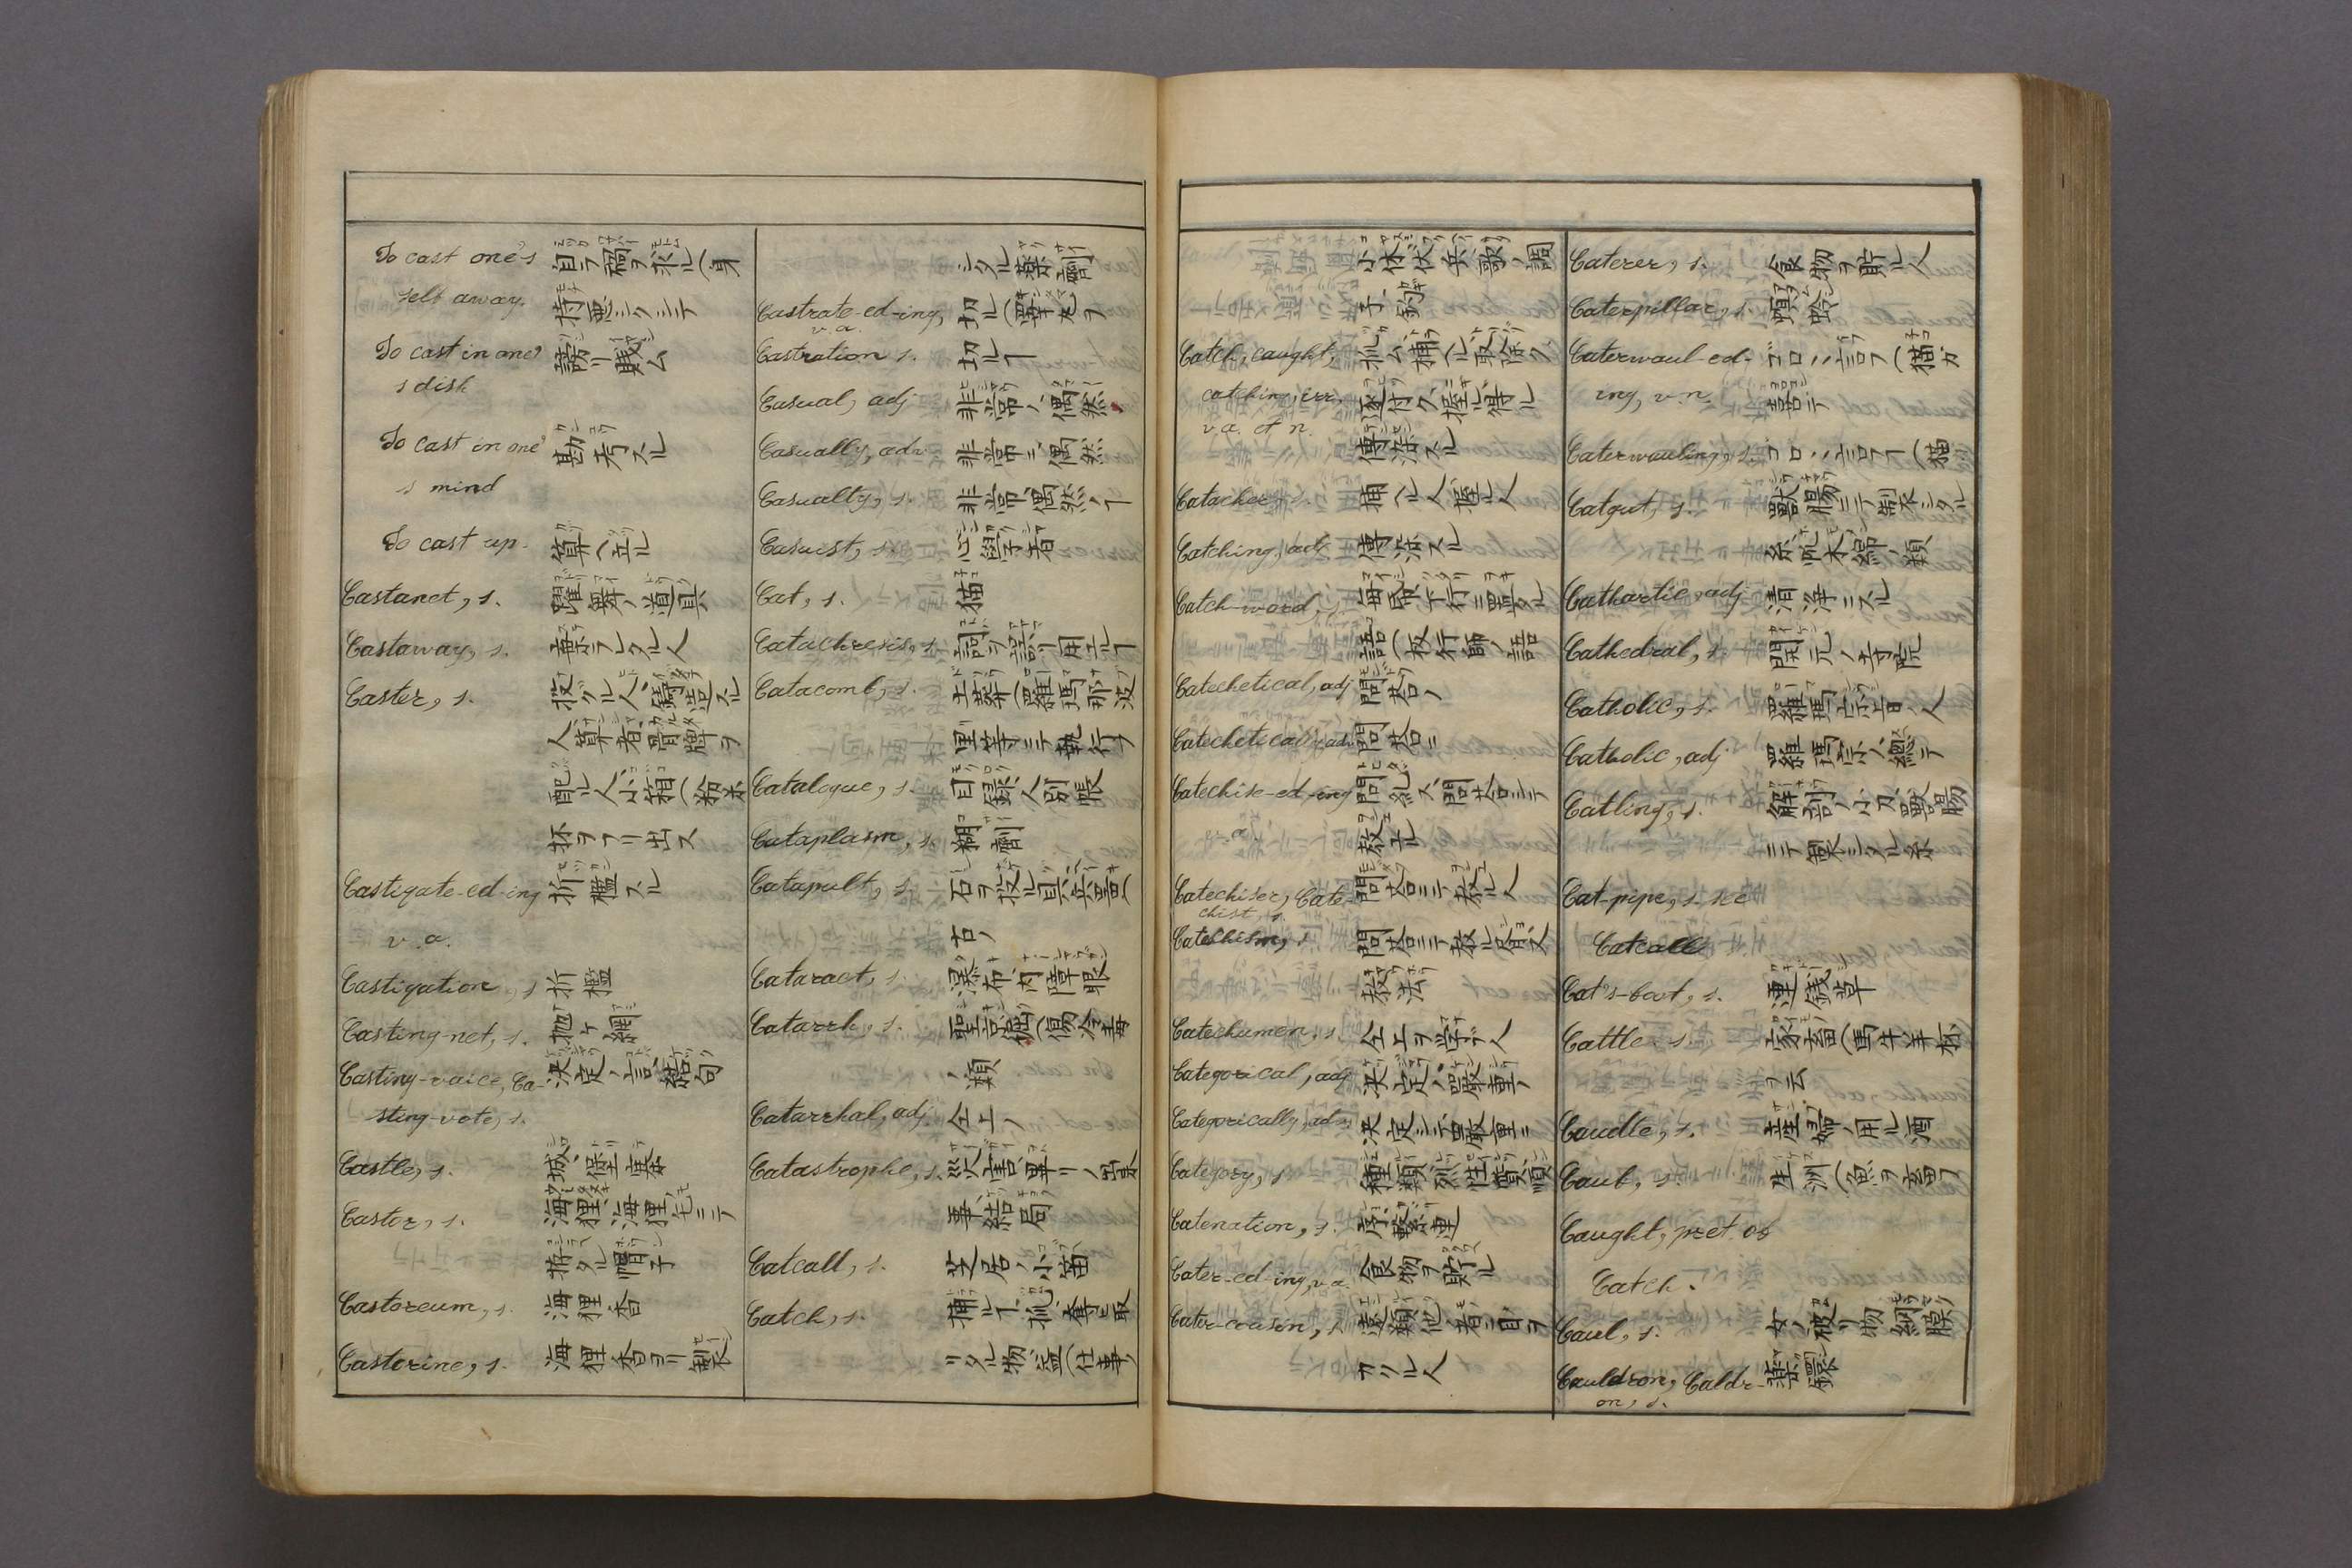 To cast one's 自ラ禍ヲ求ル(身
self away. 持悪シクシテ
To cast in one' 謗リ賤ム
s dish
To cast in one' 勘考スル
s mind
To cast up. 算ヘ立ル
Castanet, s. 躍舞ノ道具
Castaway, s. 棄ラレタル人
Caster, s. 投グル人、鋳造スル
人、算者、骨牌ヲ
配ル人、小箱(粉末
抔ヲフリ出ス
Castigate-ed-ing 折檻スル
v. a.
Castigation, s. 折檻
Casting-net, s. 抛ケ網
Casting-voice, Ca- 決定ノ言、結句
sting-vote, s.
Castle, s. 城、堡、塞
Castor, s. 海狸、海狸ノ毛ニテ
拵タル帽子
Castoreum, s. 海狸香
Castorine, s. 海狸香ヨリ製
シタル薬劑
Castrate-ed-ing, 切ル(睾丸ヲ
v. a.
Castration s. 切ルヿ
Casual, adj 非常ノ、偶然ノ
Casually, adv. 非常ニ、偶然
Casualty, s. 非常、偶然ノヿ
Casuist, s. 心学者
Cat, s. 猫
Catachresis, s. 詞ヲ誤リ用ユルヿ
Catacomb, s. 土葬(羅瑪那波
里等ニテ執行フ
Catalogue, s. 目録、人別帳
Cataplasm, s. 糊劑
Catapult, s. 石ヲ投ル具、兵器(
古ノ
Cataract, s. 瀑布、内障眼
Catarrh, s. (傷冷毒
ノ類
Catarrhal, adj. 仝上ノ
Catastrophe, s. 災害、畢リノ
事、結局
Catcall, s. 芝居ノ小笛
Catch, s. 捕ルヿ、
リタル物、益(仕事ノ
小休、伏兵、歌ノ調
子、
Catch, caught, 捕ヘル、取除ク、
catching, irr. 逐付ク、握ル、得ル
v. a. et n. 傳染スル
Catacher, s. 捕ヘル人、握ル人
Catching, adj 傳染スル
Catch-word, s. 毎帋下行ニ置タル
語(板行師ノ語
Catechetical, adj 問答ノ
Catechetically, adv 問答ニ
Catechise-ed-ing 問糺ス、問答ニテ
v. a. 教ル
Catechiser, Cate- 問答ニテ教ル人
chist, s.
Catechism, s. 問答ニテ教ル
教法
Catechumen, s. 仝上ヲ学ブ人
Categorical, adj 決定ノ、嚴重ノ
Categorically, adv 決定シテ、嚴重ニ
Category, s. 種類、列、性質、順
Catenation, s. 序、繋連
Cater-ed-ing, v. a. 食物ヲ貯ル
Cater-cousin, s. 遠類、他ノ者ニ食ヲ
カリル人
Caterer, s. 食物ヲ貯ル人
Caterpillar, s.
Caterwaul-ed- ゴロヽヽ言フ(猫ガ
ing, v. n. 喜ンデ
Caterwauling, s. ゴロヽヽ言フヿ(猫
Catgut, s. 獣腸ニテ製シタル
糸、木綿ノ類
Cathartic, adj 清浄ニスル
Cathedral, s. 開元ノ寺院
Catholic, s. 羅瑪宗旨ノ人
Catholic, adj 羅瑪宗ノ、總テ
Catling, s. 解剖ノ小刀、獣腸
ニテ製シタル糸
Cat-pipe, s. see
Catcall
Cat's-foot, s. 連銭草
Cattle s. 家畜(馬牛羊抔
ヲ云
Caudle, s. 産婦ノ用ル酒
Cauf, s. 生洲(魚ヲ畜フ
Caught, pret. of
Catch.
Caul, s. 女ノ被リ物、網膜
Cauldron, Caldr- 薬鑵
on, s.